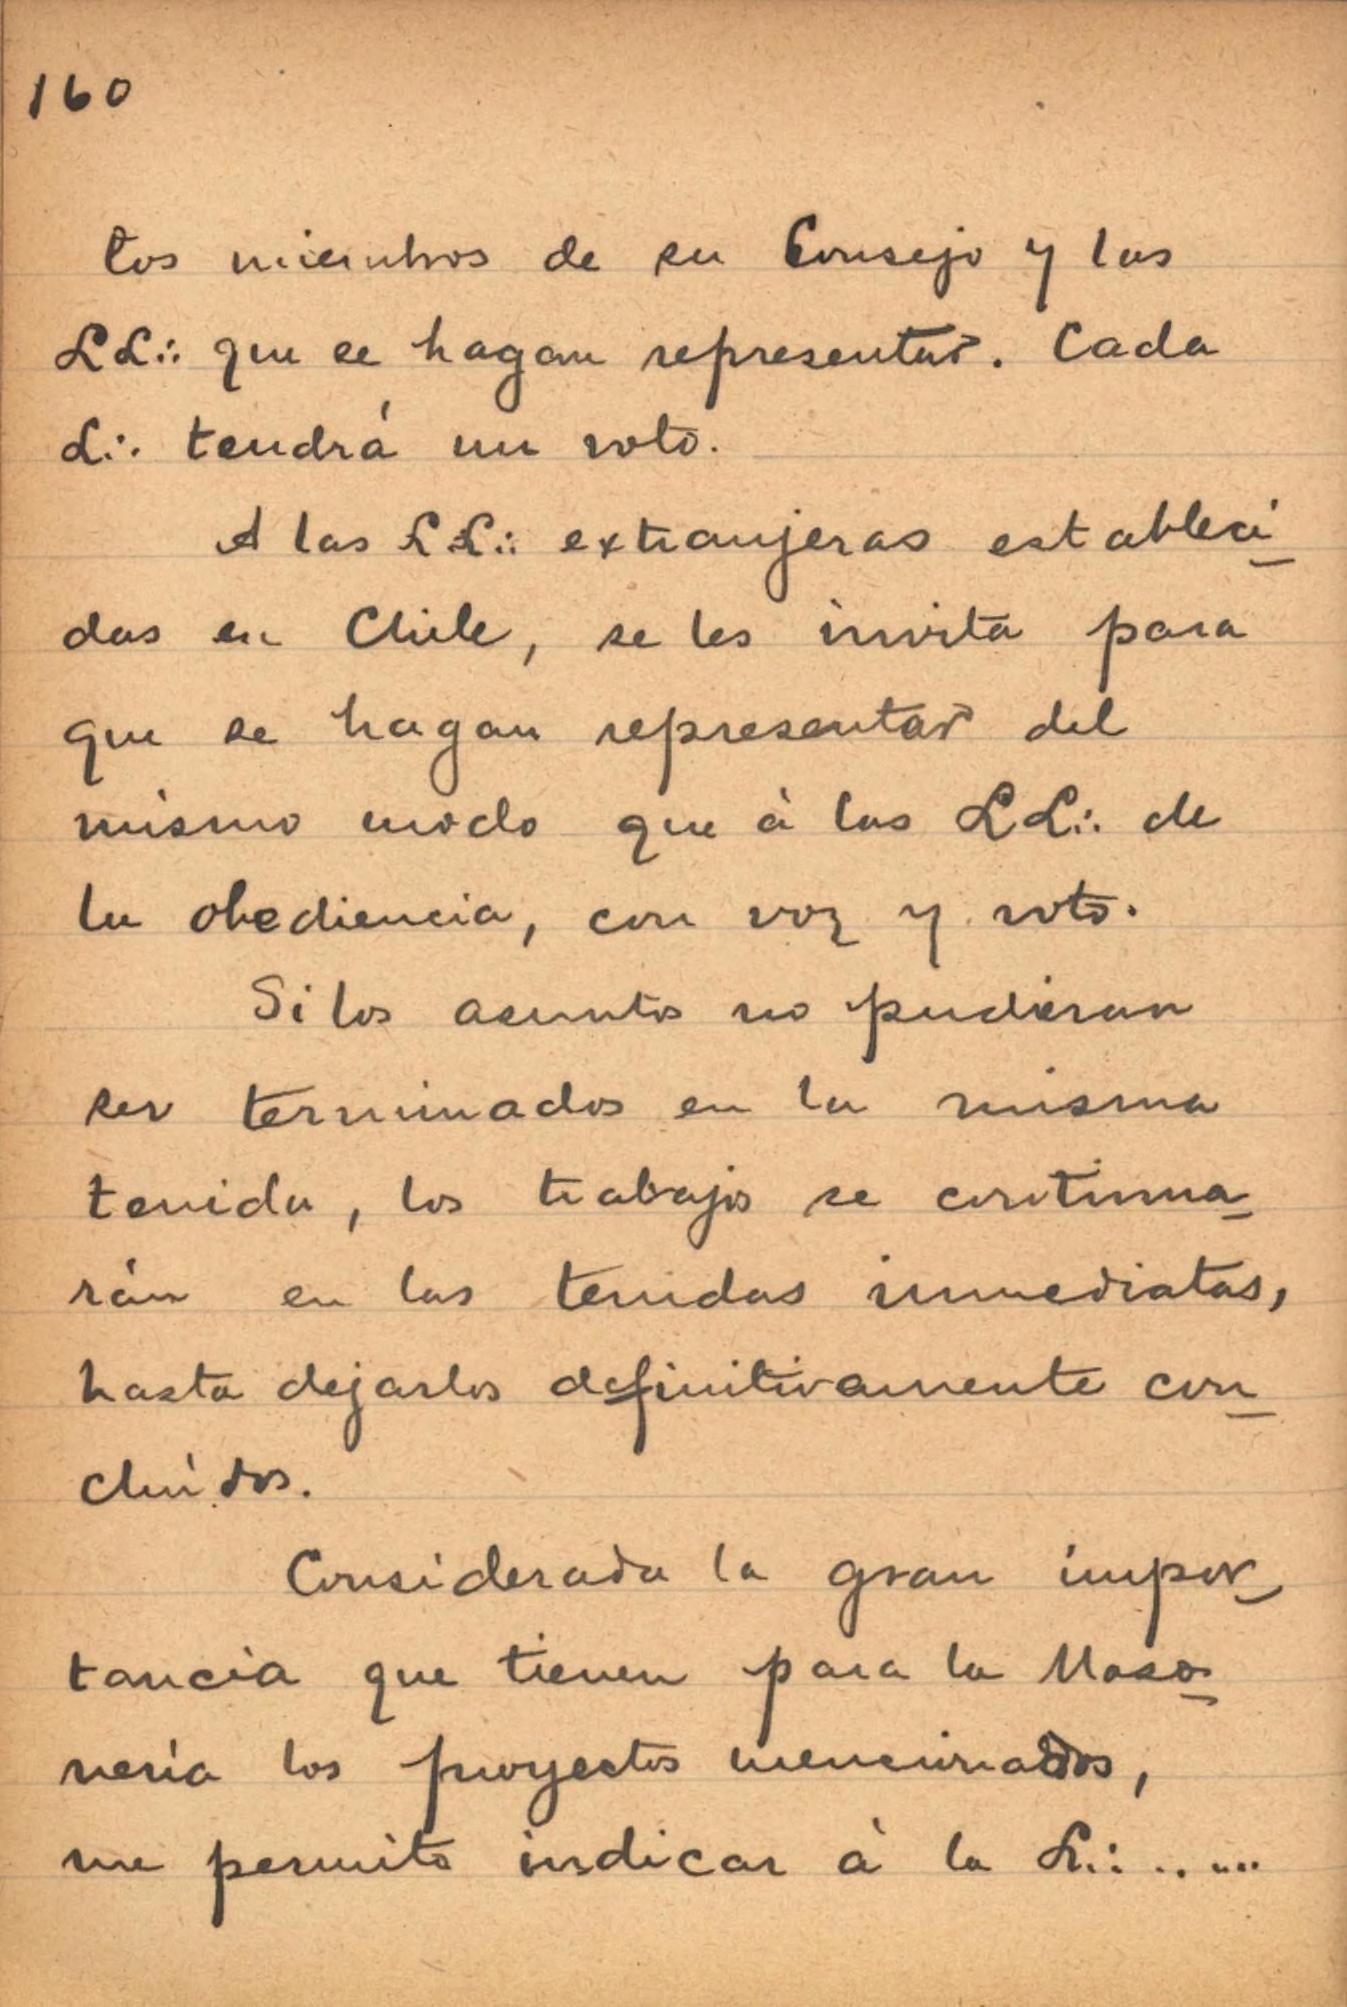 160
los miembros de su Consejo y las
LL∴ que se hagan representar. Cada
L∴ tendrá un voto.
A las LL∴ extranjeras estableci-
das en Chile, se les invita para
que se hagan representar del
mismo modo que à las LL∴ de
la obediencia, con voz y voto.
Si los asuntos no pudieran
ser terminados en la misma
tenida, los trabajos se continua-
rán en las tenidas inmediatas,
hasta dejarlos definitivamente con-
cluidos.
Considerada la gran impor-
tancia que tienen para la Maso-
nería los proyectos mencionados,
me permito indicar à la L∴ .. ...